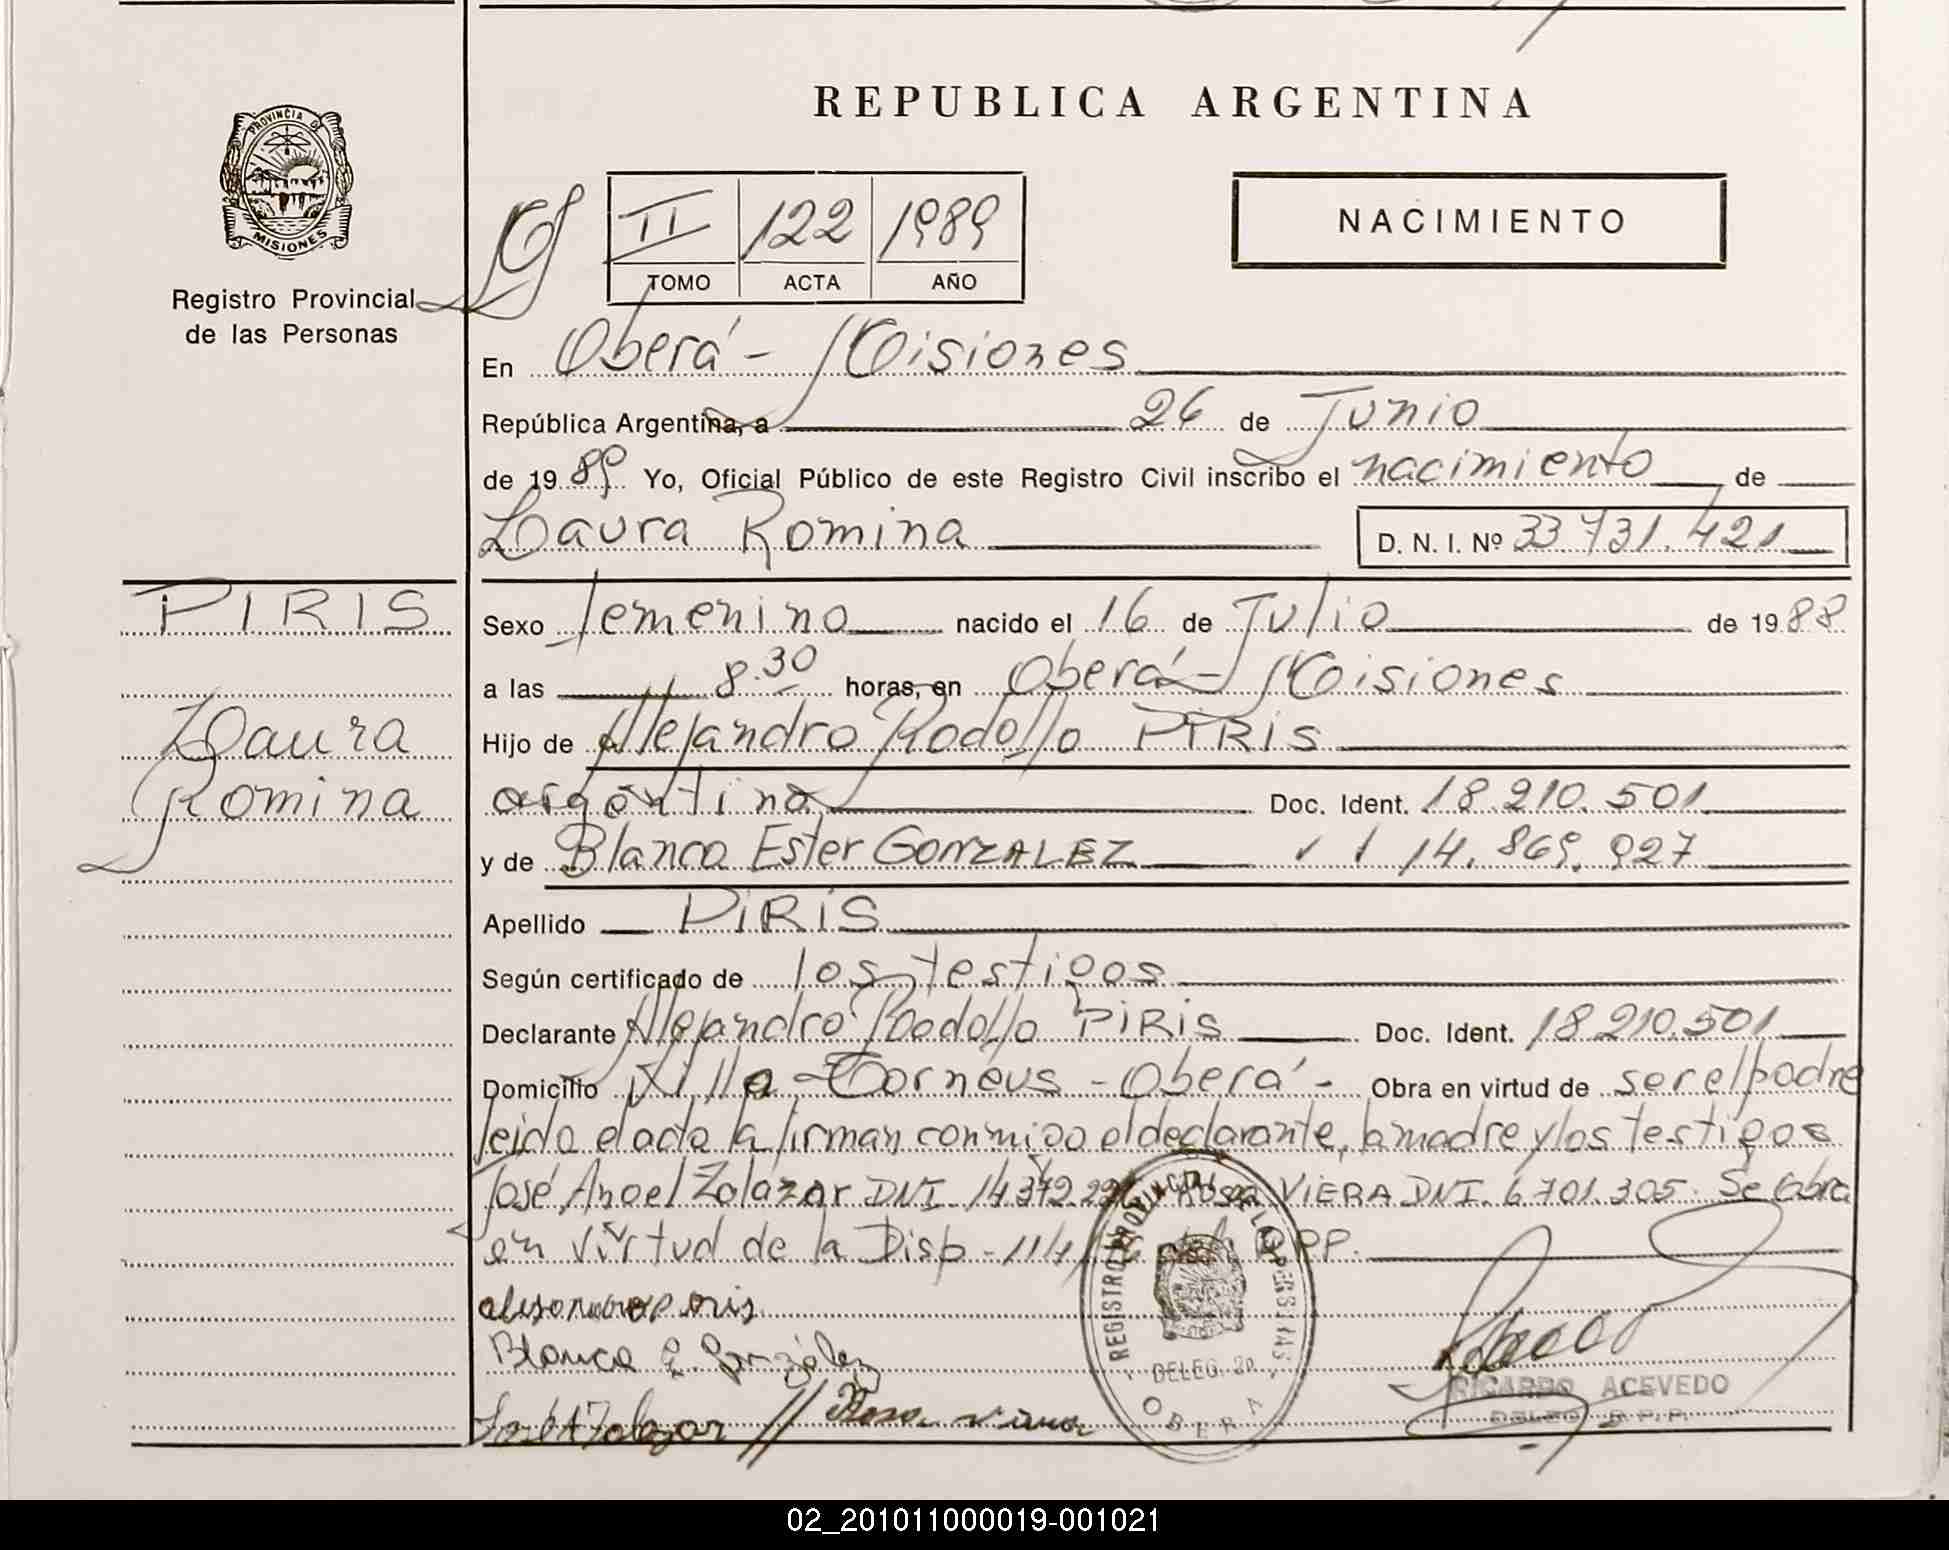 REPUBLICA ARGENTINA
PROVINCIA DE
MISIONES
Registro Provincial
de las Personas
II 122 1989
TOMO ACTA AÑO
NACIMIENTO
En Oberá - Misiones
República Argentina, a 26 de Junio
de 1989 Yo, Oficial Público de este Registro Civil inscribo el nacimiento de
Laura Romina D. N. I. Nº 33 731.421
PIRIS
Laura
Romina
Sexo femenino nacido el 16 de Julio de 1988
a las 8.30 horas, en Oberá - Misiones
Hijo de Alejandro Rodolfo PIRIS
argentina Doc. Ident. 18.210.501
y de Blanca Ester GONZALEZ 14.869.927
Apellido PIRIS
Según certificado de los testigos
Declarante Alejandro Rodolfo PIRIS Doc. Ident. 18.210.501
Domicilio Villa Torneus - Oberá - Obra en virtud de ser el padre
leida el acta la firman conmigo el declarante, la madre y los testigos
José Angel Zalazar DNI 14.372.22 Rosa VIERA DNI. 6.701.305. Se labra
en virtud de la Disp - 11/1 RPP.
Blanca E. González
José A Zalazar // Rosa viera
REGISTRO PROVINCIAL DE LAS PERSONAS
DELEG. 2a.
OBERA
RICARDO ACEVEDO
DELEG. R.P.P.
02_201011000019-001021